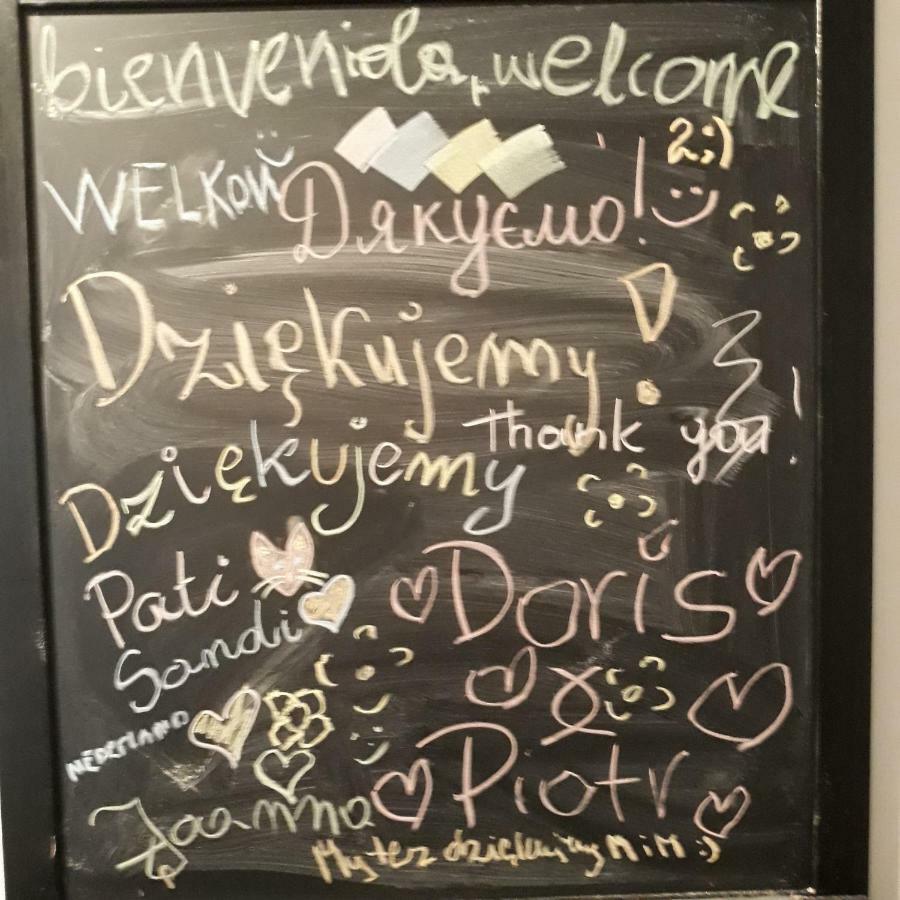 bienvenido, welcome
WELKOM
2;)
Дякуємо!
Dziękujemy!
Thank you!
Dziękujemy
Pati
Sandi
Doris
&
NEDERLAND
Piotr
Joanna
My też dziękujemy M i M :)